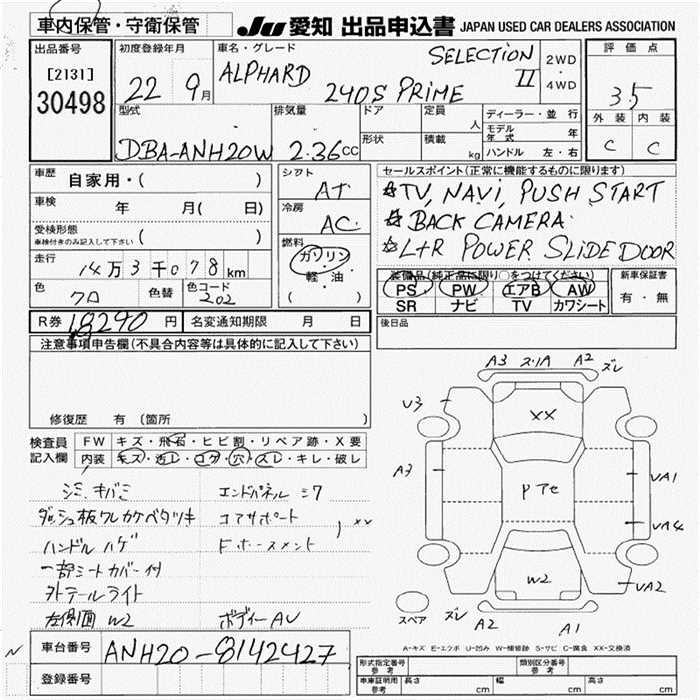 車内保管・守衛保管
JU 愛知 出品申込書 JAPAN USED CAR DEALERS ASSOCIATION
出品番号
[2131]
30498
初度登録年月
22 9月
車名・グレード
ALPHARD
SELECTION II
240S PRIME
2WD
・
4WD
評価点
3.5
外装 内装
C C
型式
DBA-ANH20W
排気量
2.36cc
ドア
形状
定員 人
積載 kg
ディーラー・並行
モデル年式 年
ハンドル 左・右
車歴 自家用・( )
車検 年 月( 日)
受検形態
車検付きのみ記入して下さい ( )
走行 14万3千078km
色 クロ 色替 色コード 202
シフト AT
冷房 AC
燃料
ガソリン
・
軽・油
( )
セールスポイント(正常に機能するものに限ります)
☆TV, NAVI, PUSH START
☆BACK CAMERA
☆L+R POWER SLIDE DOOR
装備品(純正品に限り○をつけてください)
PS PW エアB AW
SR ナビ TV カワシート
新車保証書
有・無
R券 18290円 名変通知期限 月 日
後日品
注意事項申告欄(不具合内容等は具体的に記入して下さい)
修復歴 有 (箇所 )
検査員記入欄
FW キズ・飛石・ヒビ割・リペア跡・X要
内装 キズ・汚レ・コゲ・穴・スレ・キレ・破レ
シミ、キバミ
ダッシュ板ワレカケベタツキ
ハンドル ハゲ
一部シートカバー付
外テールライト
左側面 W2
エンドパネル
コアサポート
XX
ボディーAU
A3 スリA A2 ズレ
U3
XX
A3
UA1
PTe
UA4
W2
UA2
スペア
ズレ
A2
A1
A-キズ E-エクボ U-凹み W-補修跡 S-サビ C-腐食 XX-交換済
車台番号 ANH20-8142427
登録番号
形式指定番号 参考
類別区分番号 参考
車庫証明用 参考 長さ cm 幅 cm 高さ cm